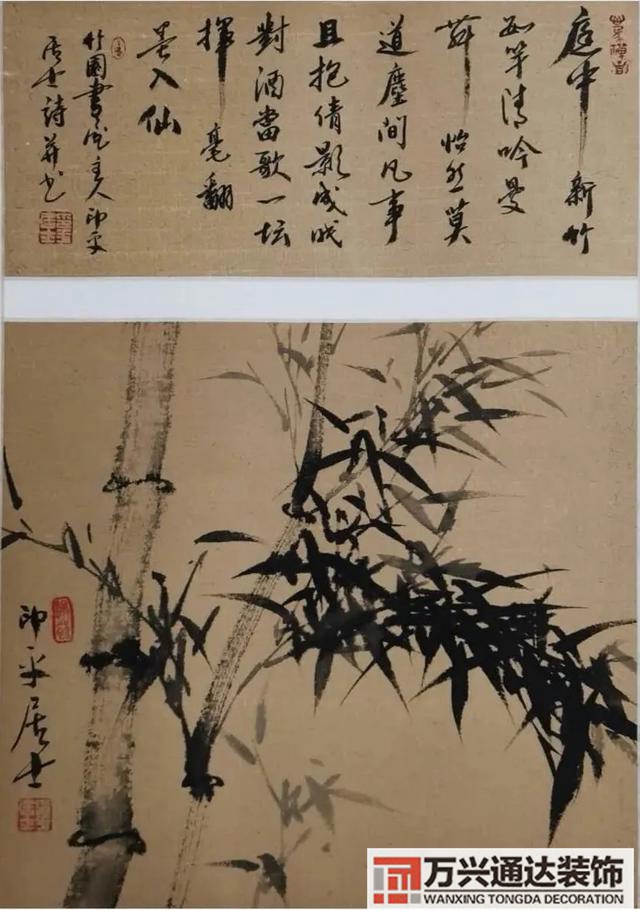 庭中新竹
数竿清吟曼
舞怡然莫
道塵間凡事
且抱倩影成眠
對酒當歌一坛
揮毫翻
墨入仙
竹園書主人印平
居士詩并书
印平居士
万兴通达装饰
WANXING TONGDA DECORATION